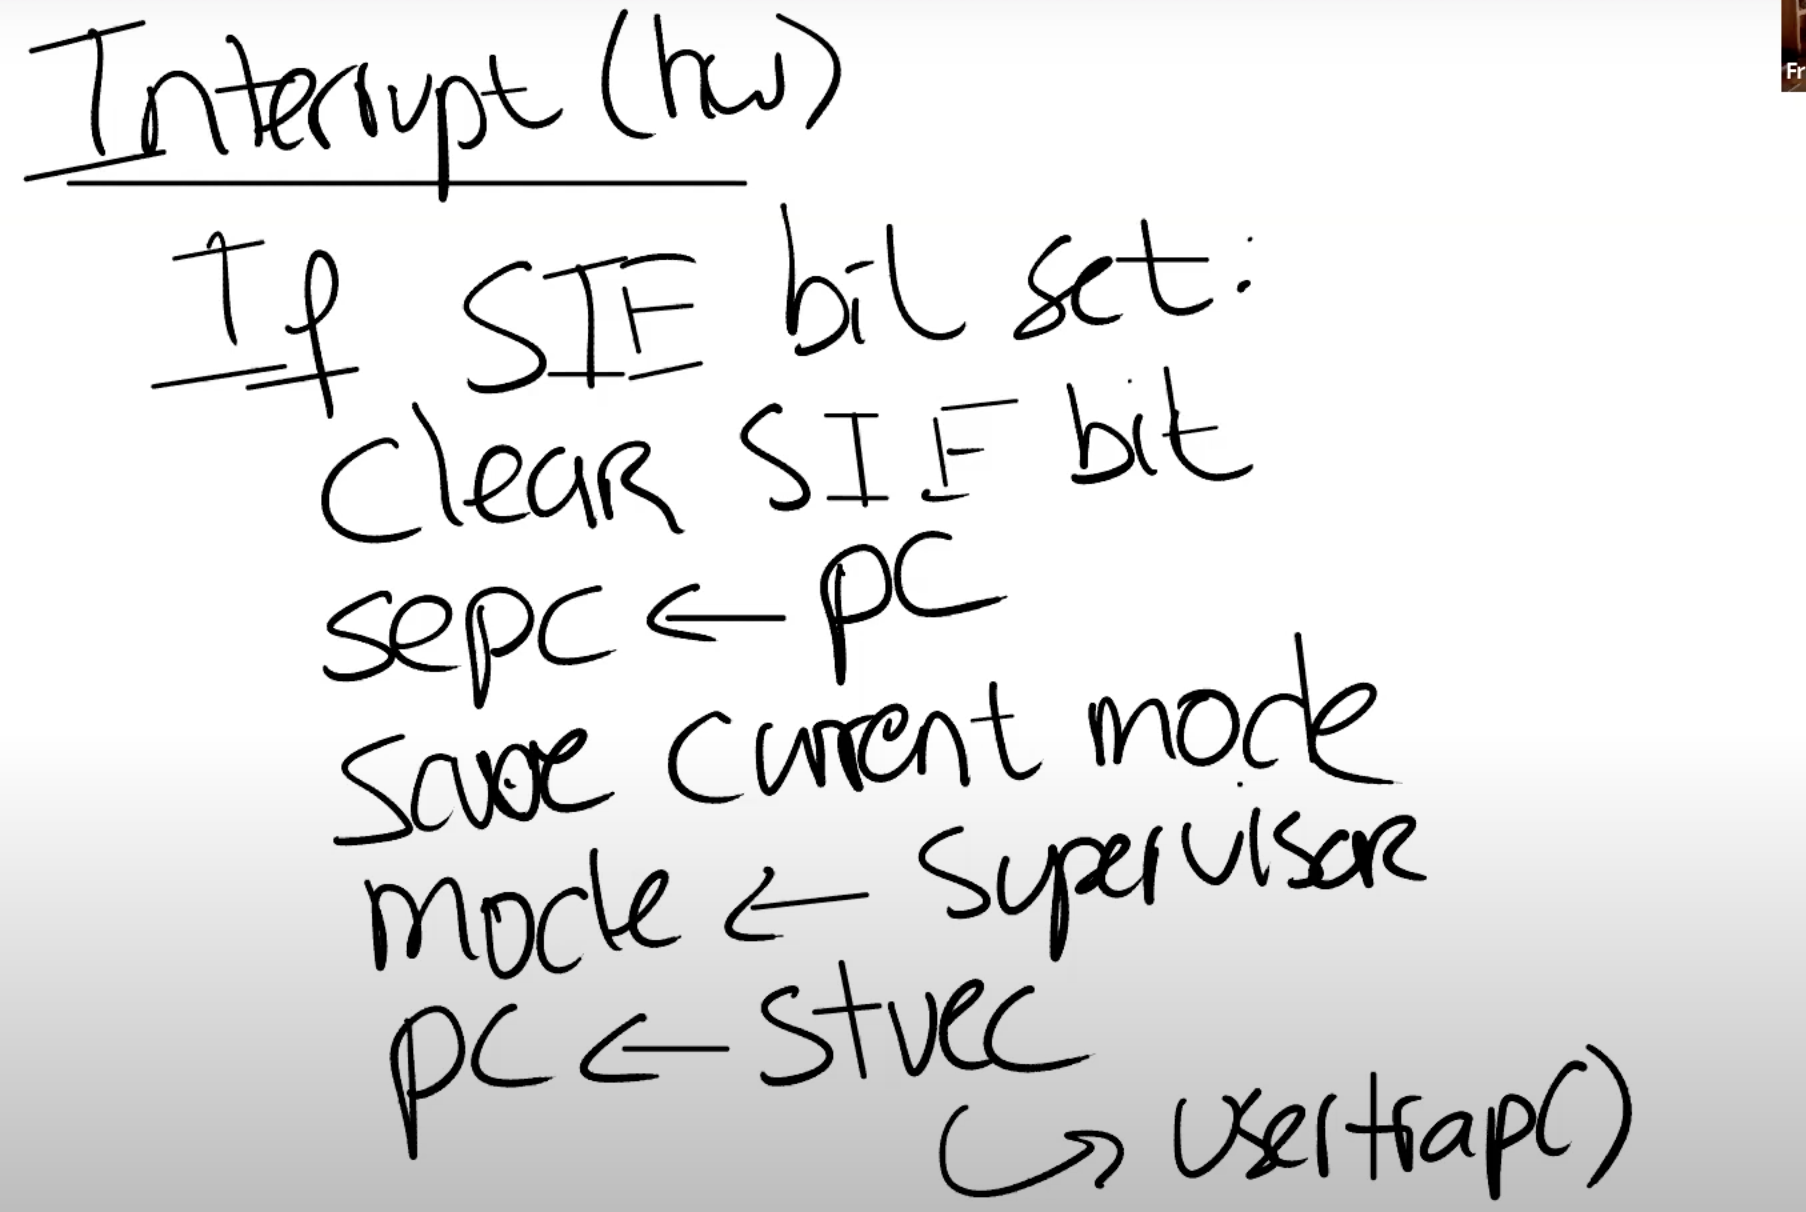 Interrupt (hw)
If SIE bit set:
Clear SIE bit
sepc ← pc
Save current mode
mode ← supervisor
pc ← stvec
↳ usertrap()
Fr